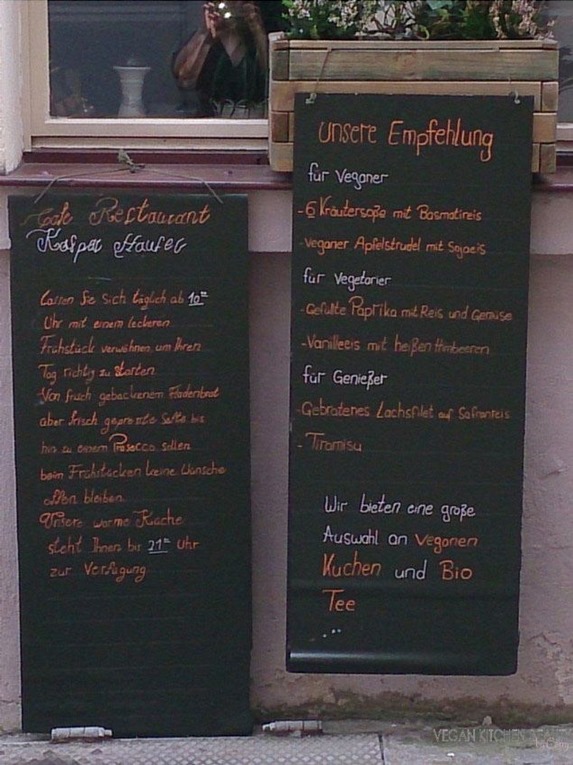 Cafe Restaurant
Kaspar Hauser
Lassen Sie sich täglich ab 10°°
Uhr mit einem leckeren
Frühstück verwöhnen, um Ihren
Tag richtig zu starten.
Von frisch gebackenem Fladenbrot
aber frisch gepresste Säfte bis
hin zu einem Prosecco sollen
beim Frühstücken keine Wünsche
offen bleiben.
Unsere warme Küche
steht Ihnen bis 21°° Uhr
zur Verfügung
unsere Empfehlung
für Veganer
- 6 Kräutersoße mit Basmatireis
- veganer Apfelstrudel mit Sojaeis
für Vegetarier
- Gefüllte Paprika mit Reis und Gemüse
- Vanilleeis mit heißen Himbeeren
für Genießer
- Gebratenes Lachsfilet auf Safranreis
- Tiramisu
Wir bieten eine große
Auswahl an Veganen
Kuchen und Bio
Tee
...
VEGAN KITCHEN